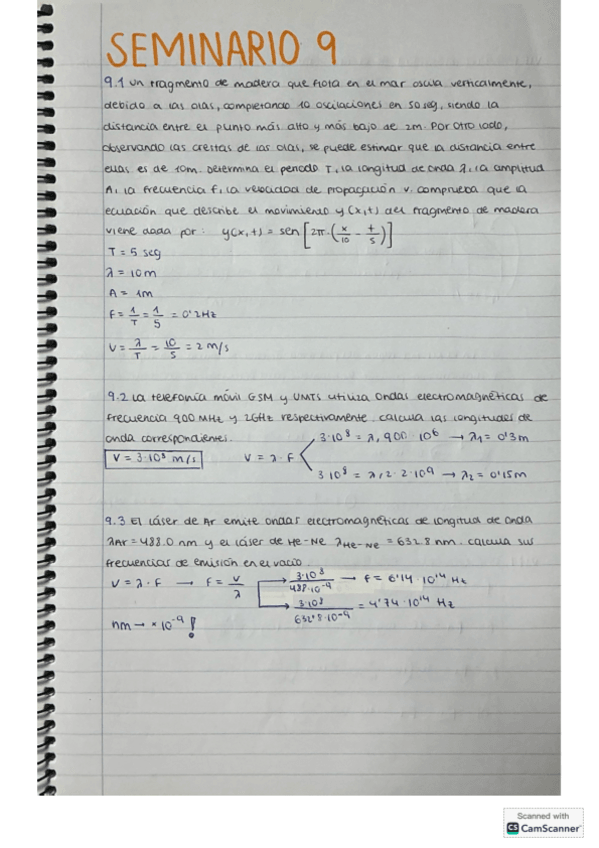 SEMINARIO 9
9.1 Un fragmento de madera que flota en el mar oscila verticalmente,
debido a las olas, completando 10 oscilaciones en 50 seg, siendo la
distancia entre el punto más alto y más bajo de 2m. Por otro lado,
observando las crestas de las olas, se puede estimar que la distancia entre
ellas es de 10m. Determina el periodo T, la longitud de onda λ, la amplitud
A, la frecuencia f, la velocidad de propagación v. comprueba que la
ecuación que describe el movimiento y(x,t) del fragmento de madera
viene dada por: y(x,t) = sen [2π·(x/10 - t/5)]
T = 5 seg
λ = 10m
A = 1m
F = 1/T = 1/5 = 0'2Hz
V = λ/T = 10/5 = 2 m/s
9.2 La telefonía móvil GSM y UMTS utiliza ondas electromagnéticas de
frecuencia 900 MHz y 2GHz respectivamente. calcula las longitudes de
onda correspondientes.
3·10⁸ = λ, 900·10⁶ → λ₁ = 0'3m
V = 3·10⁸ m/s V = λ·F
3·10⁸ = λ, 2·10⁹ → λ₂ = 0'15m
9.3 El láser de Ar emite ondas electromagnéticas de longitud de onda
λAr = 488.0 nm y el láser de He-Ne λHe-Ne = 632.8 nm. calcula sus
frecuencias de emisión en el vacío
V = λ·F → F = V/λ → 3·10⁸/488·10⁻⁹ → F = 6'14·10¹⁴ Hz
→ 3·10⁸/632'8·10⁻⁹ = 4'74·10¹⁴ Hz
nm → ×10⁻⁹ !
Scanned with
CS CamScanner